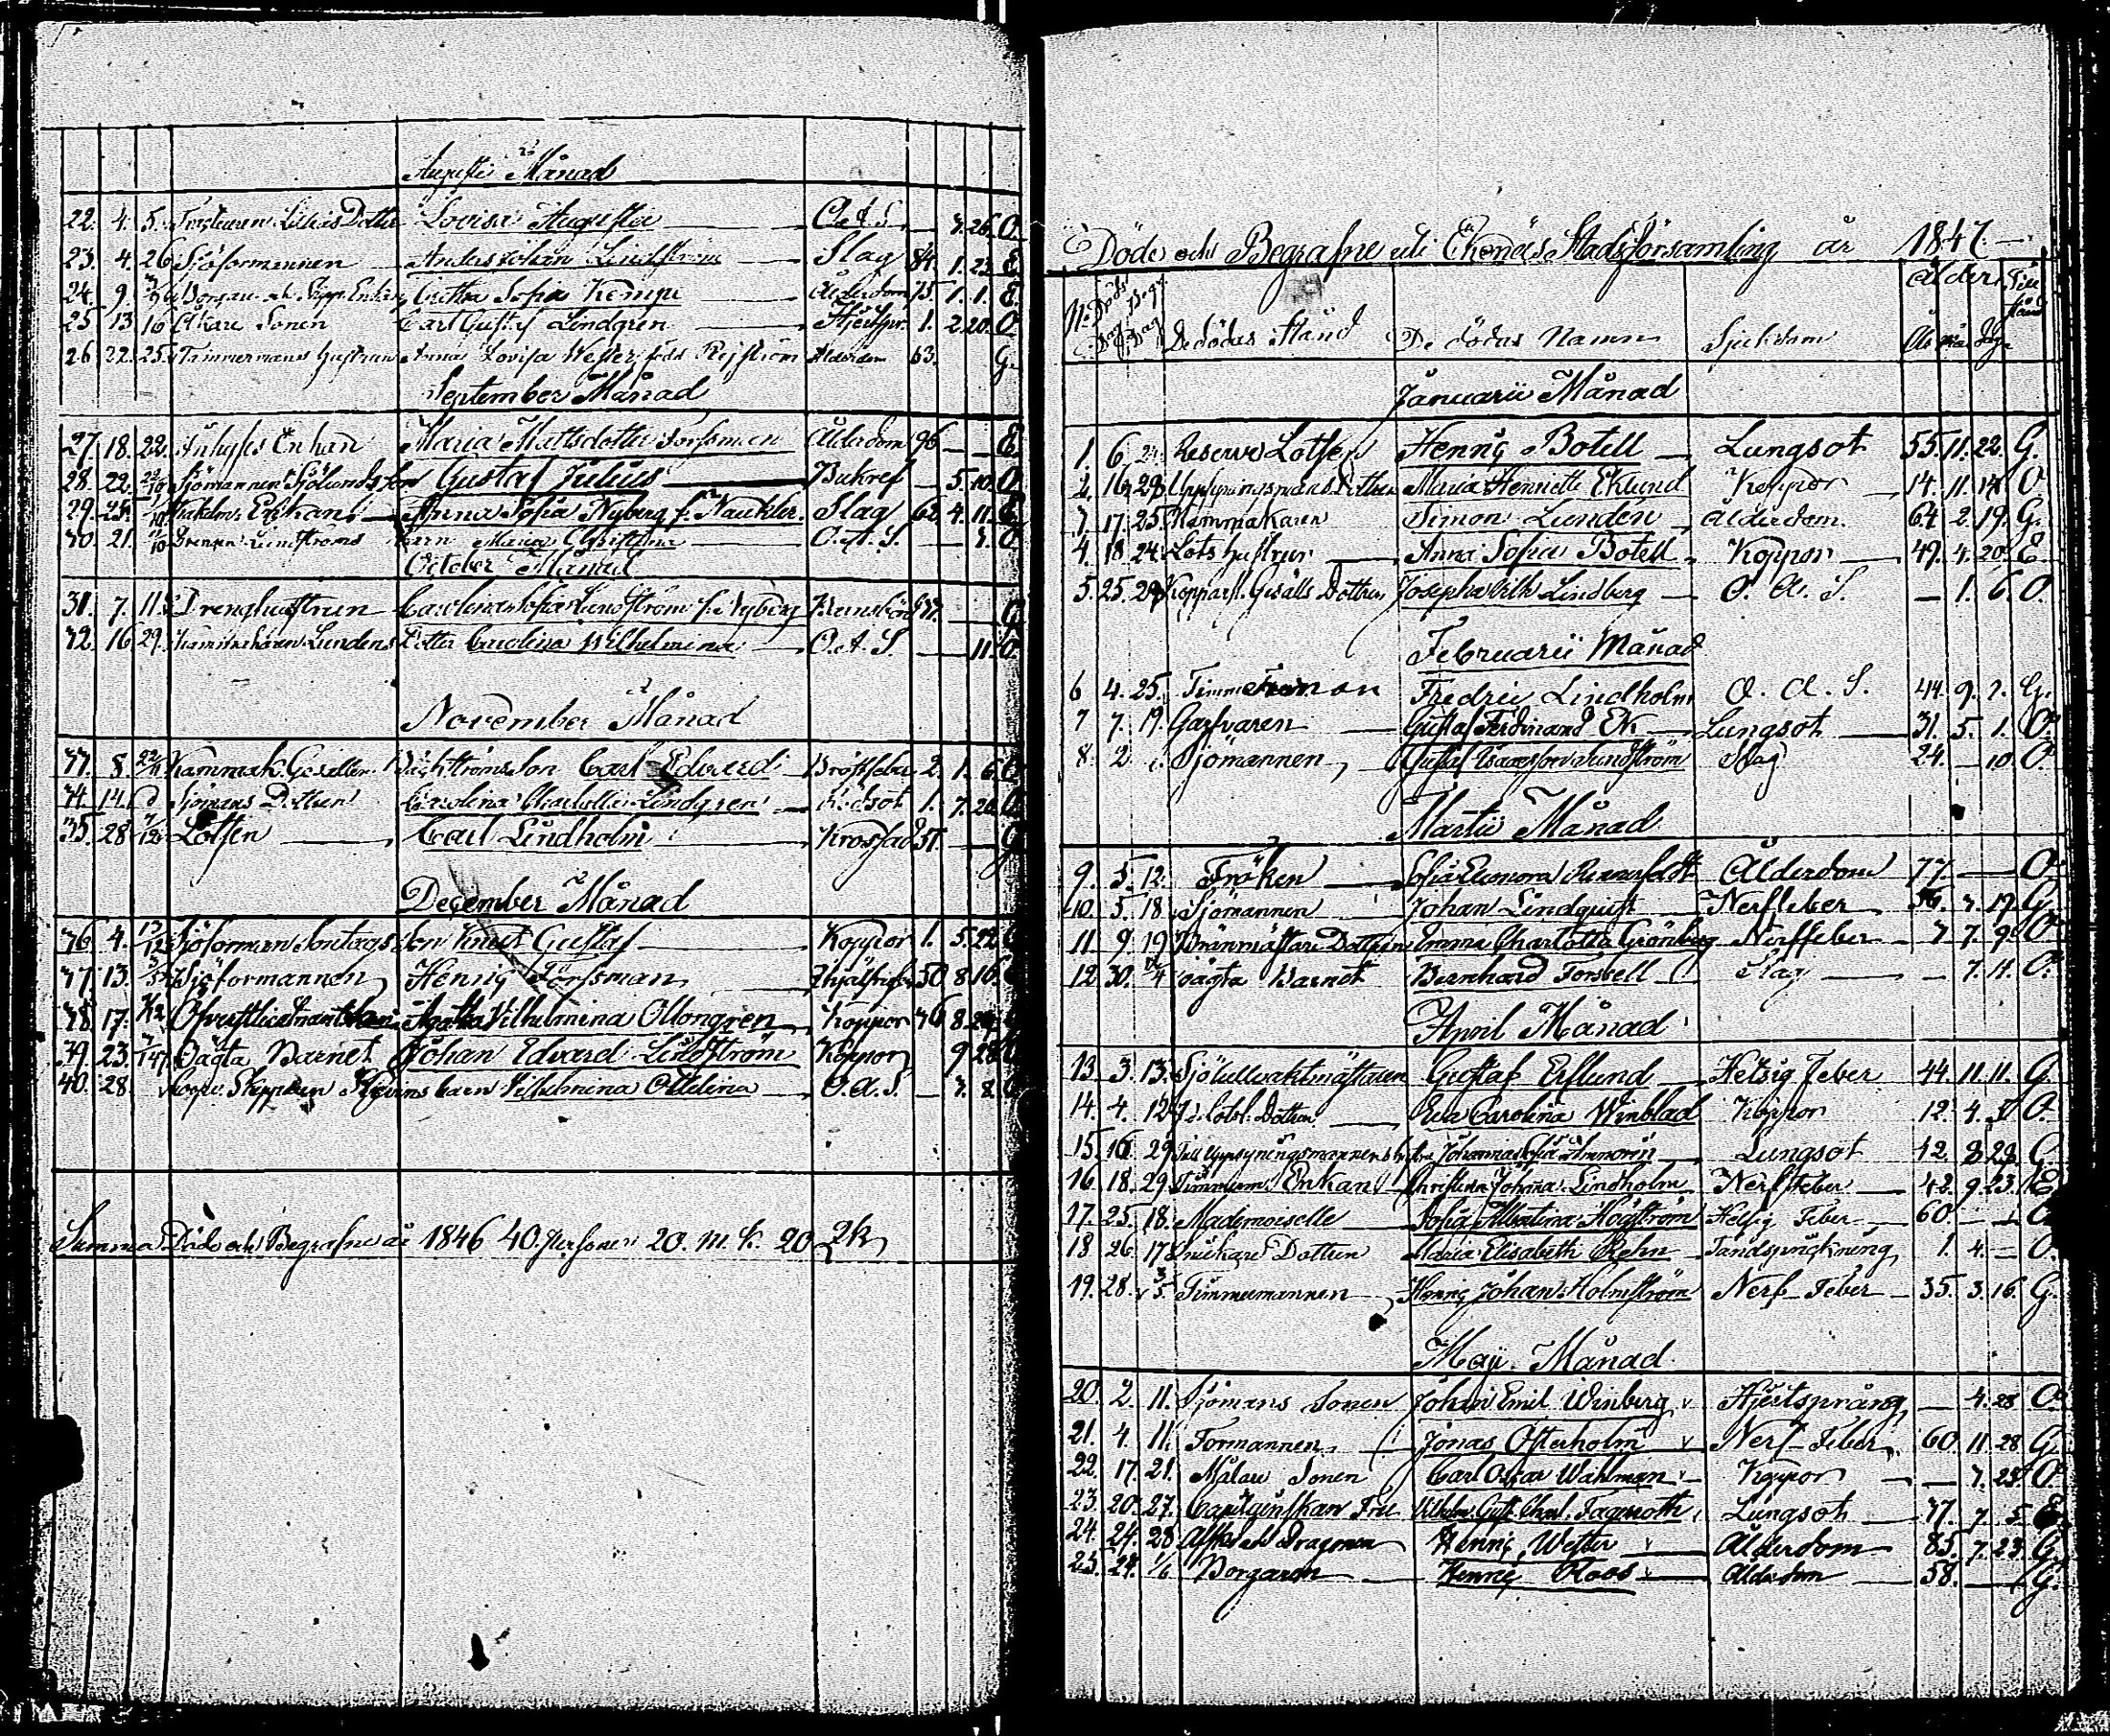 Augusti Månad
22. 4. 5. Dotter Lovisa Augusta O.A.S. 7. 26. O
23. 4. 26 Sjöformannen Anders Johan Lindström Slag 84. 1. 23. E
24. 9. Borgare Enkan Greta Sofia Kempe Ålderdom 75 1. 1. E.
25 13 16 Åkare Sonen Carl Gustaf Lindgren Hjertspr. 1. 2. 20. O
26 22. 25. Timmermans hustrun Anna Lovisa Wester född Ålderdom 63. G.
September Månad
27. 18. 22. Enkan Maria Mattsdotter Forssman Ålderdom 96 E
28. 22. Sjömannen Sjölunds Son Gustaf Julius Bukref 5. 10. O
29. 25. Enkan Anna Sofia Nyberg f. Nauckler Slag 62 4. 11. E
30. 21. Drengen Lundströms barn Maria Christina O.A.S. 7. O
October Månad
31. 7. 11. Drenghustrun Carolina Sofia Lundström f. Nyberg Barnsbörd G
32. 16 29. Kammakaren Lundens Dotter Carolina Wilhelmina O.A.S. 11. O
November Månad
33. 8. Kammak. Gesellen Son Carl Edvard Bröstfeber 2. 1. 6. O
34. 14. Sjömans Dottern Carolina Charlotta Lindgren Rödsot 1. 7. 26 O
35. 28 Lotsen Carl Lindholm Krossad 51. G
December Månad
36 4. 13/12 Sjöforman Sontags Son Knut Gustaf Koppor 1. 5. 22
37. 13. Sjöformannen Henrig Forssman 50 8 16.
38 17. Agatha Wilhelmina Ollongren Koppor 76 8
39. 23. Oägta Barnet Johan Edvard Lindström Koppor 9 28
40. 28. Skepparen barn Vilhelmina Ottilina O.A.S. 7. 8.
Summa Döde och Begrafne år 1846 40 Personer 20. m. k. 20 q.k.
Döde och Begrafne uti Ekenäs Stadsförsamling år 1847.
No Döds Dag Begr. Dag De dödas Stånd De dödas Namn Sjukdom Ålder År mån dag Till stånd
Januarii Månad
1. 6 24. Reserve Lotsen Henrig Botell Lungsot 55. 11. 22. G.
2. 16. 29 Uppsyningsmans Dottern Maria Henriette Eklund Koppor 14. 11. 14 O
3. 17. 25. Kammakaren Simon Lunden Ålderdom. 64 2. 19. G.
4. 18. 24. Lots hustrun Anna Sofia Botell Koppor 49. 4. 20. E
5. 25. 29 Kopparsl. Gesälls Dottren Josepha Vilh. Lindberg O. A. S. 1. 6. O.
Februarii Månad
6 4. 25. Timmerman Fredric Lindholm O. A. S. 44. 9. 7. G.
7 7. 19. Garfvaren Gustaf Ferdinand Ek Lungsot 31. 5. 1. O.
8. 2 Sjömannen, Gustaf Isacsson Lundström Slag 24. 10. O.
Martii Månad
9. 5. 12. Fröken Sofia Eleonora Rennerfeldt Ålderdom 77. O.
10. 5. 18. Sjömannen Johan Lindquist Nerffeber 56. 7. 19 G
11 9. 19. Dottren Emma Charlotta Grönberg Nerffeber 7 7. 9. O
12 30. Oägta Barnet Bernhard Forssell Slag 7. 11. O.
April Månad
13 3. 13. Sjötullvaktmästaren Gustaf Eslund Hetsig feber 44. 11. 11. G.
14. 4. 12 Dottern Eva Carolina Winblad Koppor 12. 4. O.
15. 16. 29. Tull Uppsyningsmannens hustru Johanna Sofia Lungsot 42. 8 28. G
16. 18. 29. Timmerm. Enkan Christina Johna Lindholm Nerffeber 42. 9. 23. E
17. 25. 18. Mademoiselle Sofia Albertina Högström Hetsig Feber 60. O
18 26. 17 Snickare Dottern Maria Elisabeth Rehn Tandsprickning 1. 4. O.
19. 28. 3/5 Timmermannen Henrig Johan Holmström Nerf Feber 35. 3. 16. G.
Maji Månad
20. 2. 11. Sjömans Sonen Johan Emil Winberg Hjertsprång 4. 28 O
21. 4. 11. Formannen Jonas Österholm Nerf Feber 60. 11. 28 G.
22. 17. 21. Målare Sonen Carl Oscar Wahlman Koppor 7. 25. O.
23. 20. 27. Fru Vilhelm. Gust. Charl. Tagerroth Lungsot 77. 7 5. E
24. 24. 28 Afsked. Dragonen Henrig Wetter Ålderdom 85. 7. 23. G
25. 24. 1/6 Borgaren Henrig Roos Ålderdom 58. G.